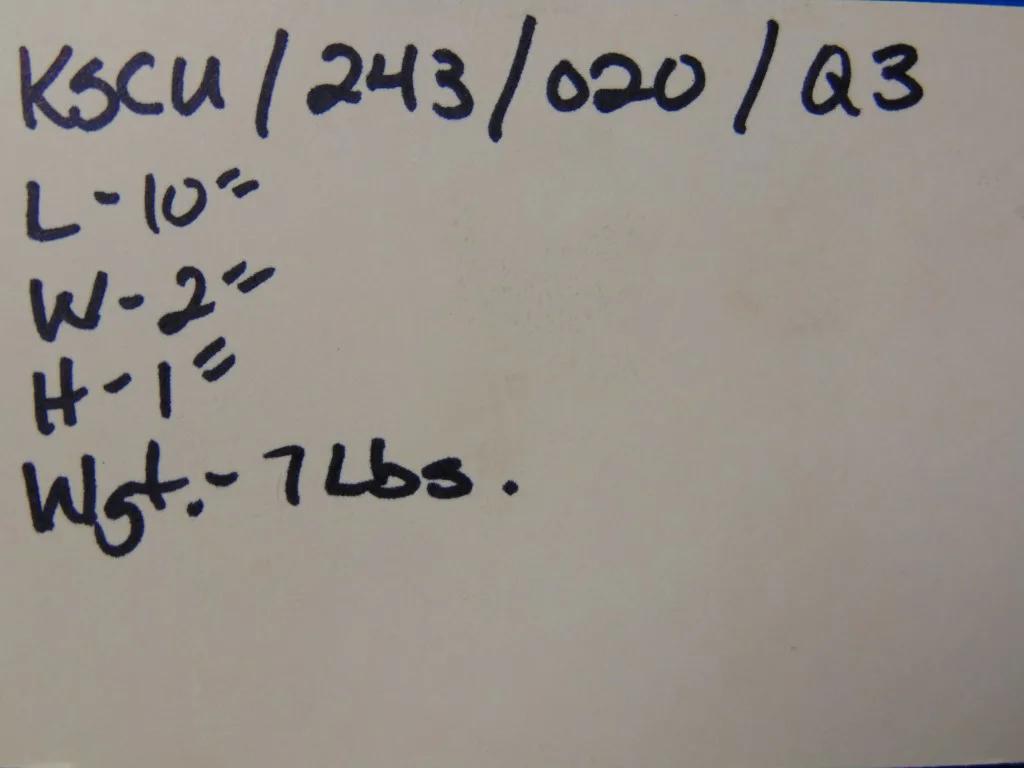 KSCU / 243 / 020 / Q3
L - 10"
W - 2"
H - 1"
Wgt. - 7 Lbs.